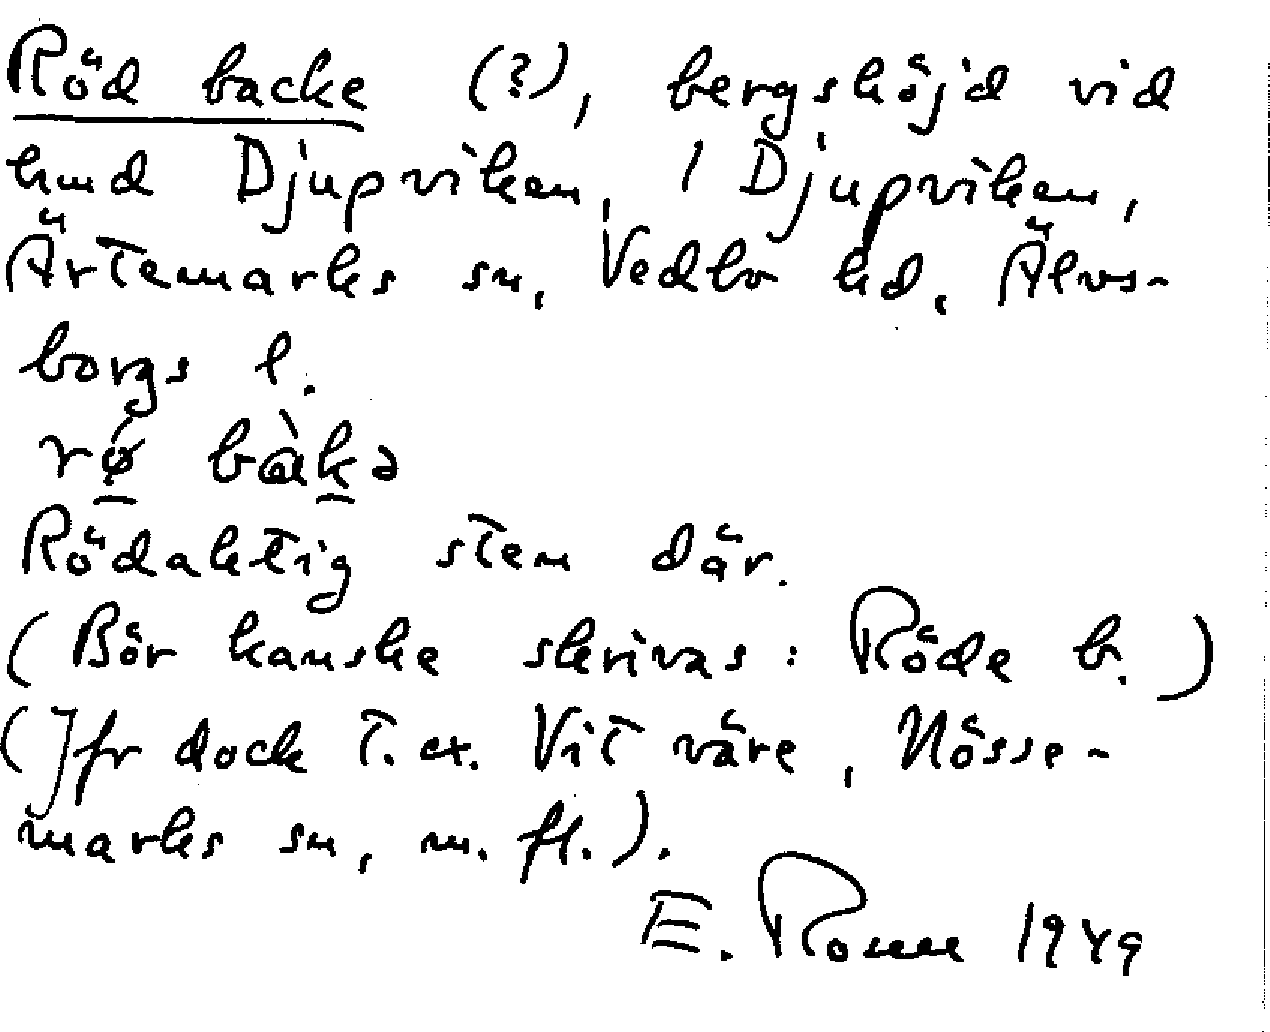 Röd backe (?), bergshöjd vid
hmd Djupviken, 1 Djupviken,
Ärtemarks sn, Vedbo hd, Älvs-
borgs l.
rǿ̠ bàk̠ə
Rödaktig sten där.
(Bör kanske skrivas: Röde b.)
(Jfr dock t.ex. Vit väre, Nösse-
marks sn, m. fl.).
E. Rosen 1949